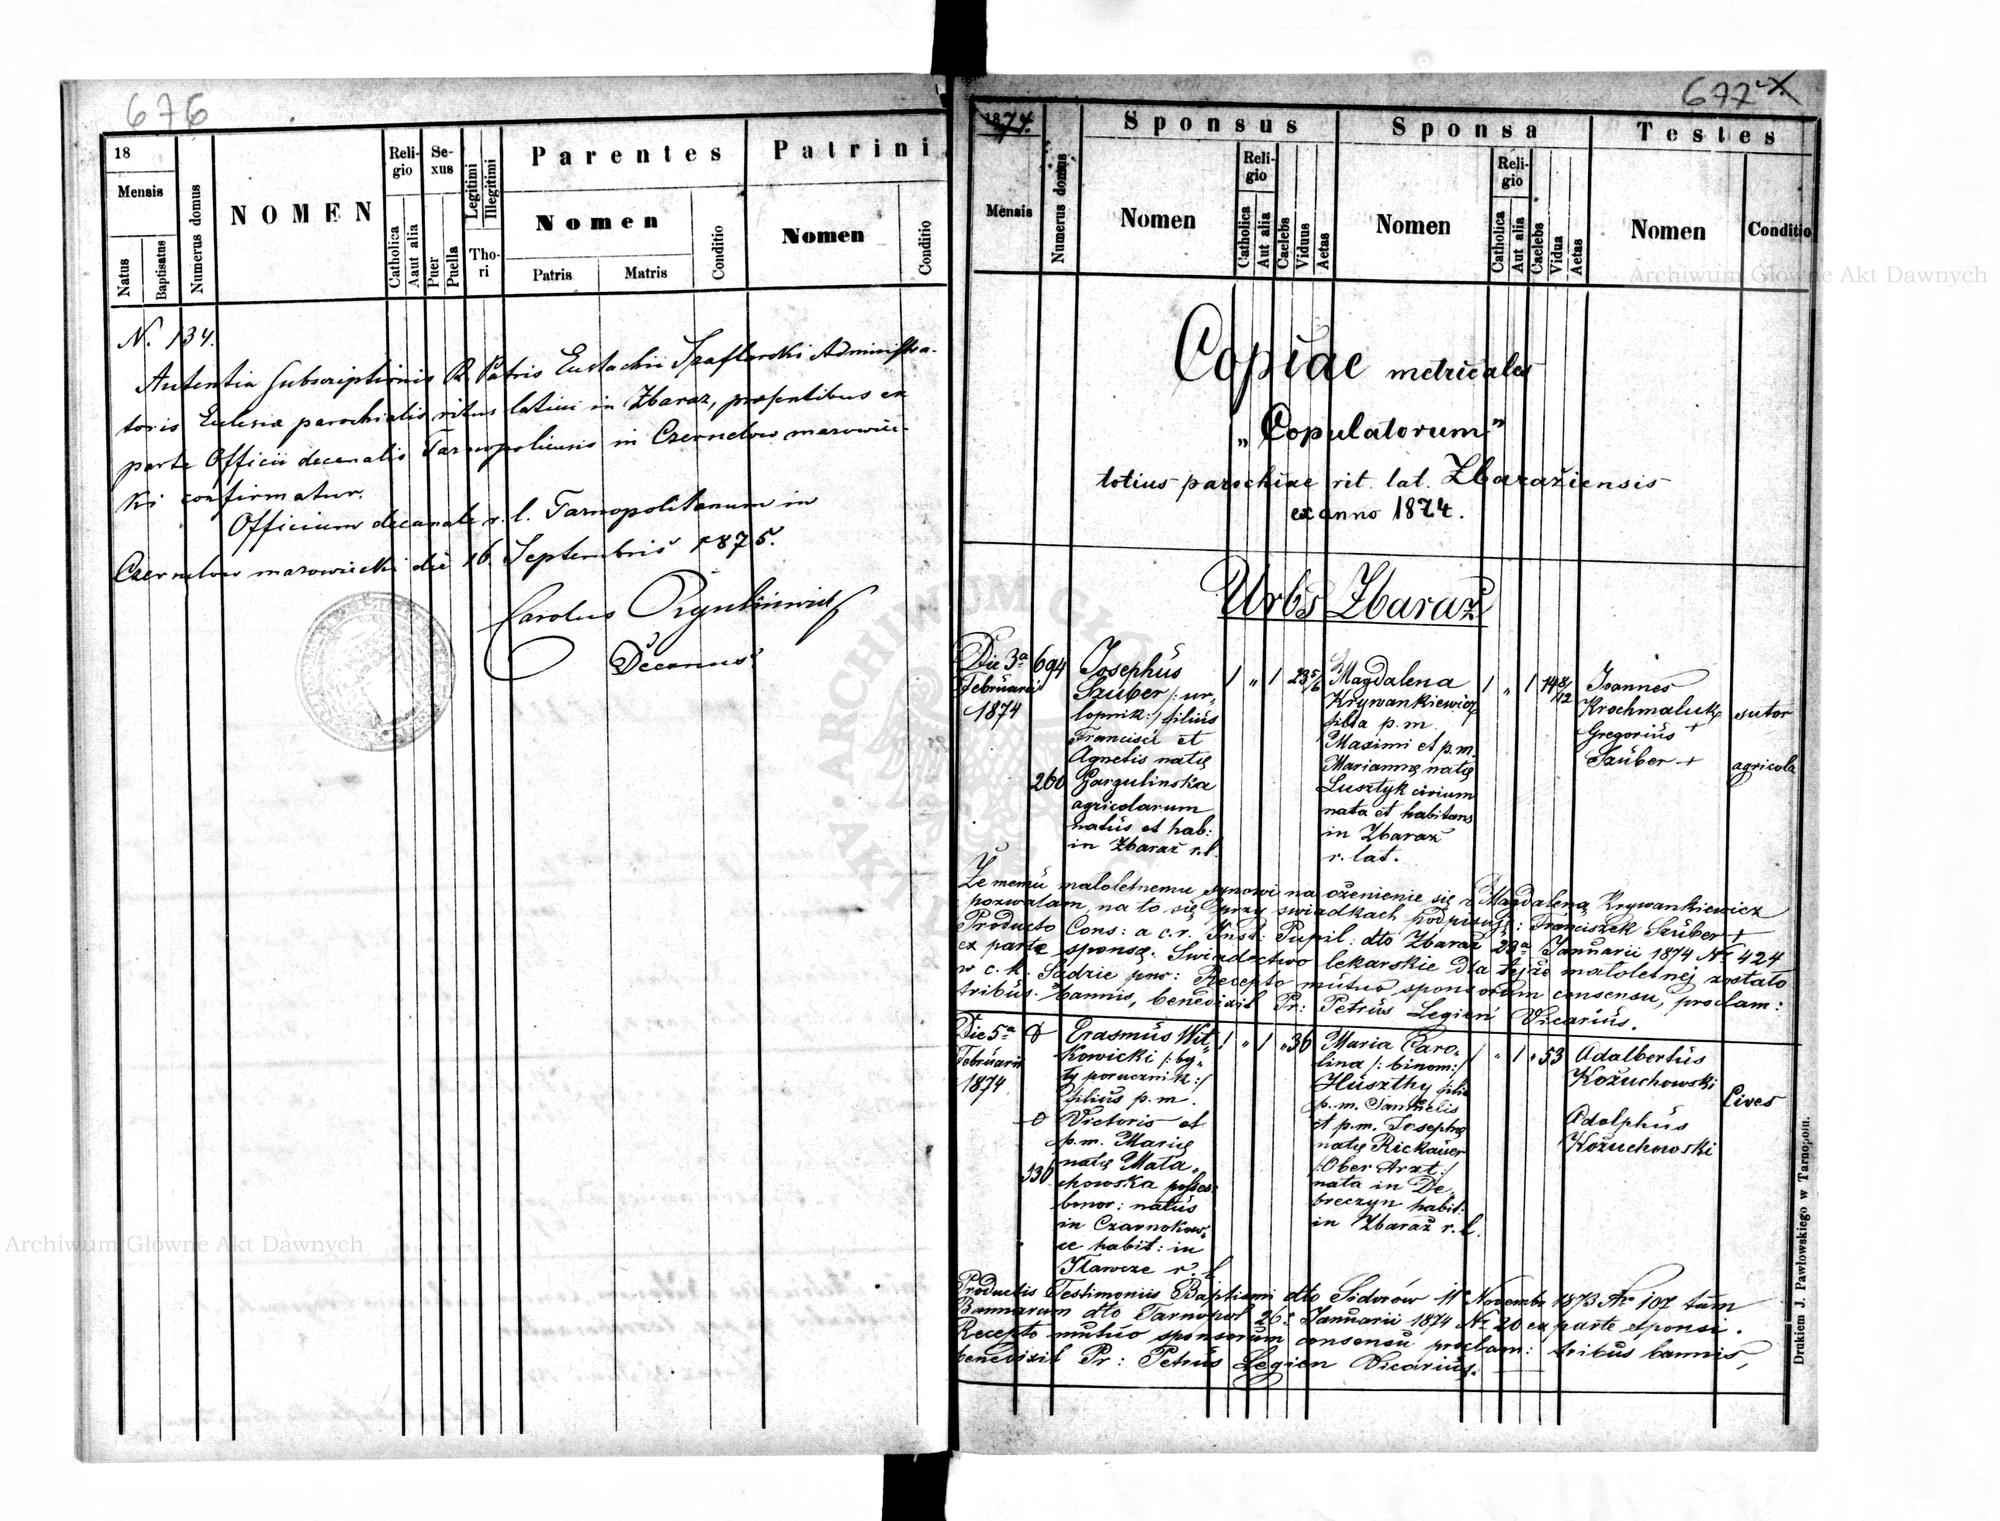 676
18
Mensis
Natus
Baptisatus
Numerus domus
NOMEN
Reli-
gio
Catholica
Aaut alia
Se-
xus
Puer
Puella
Legitimi
Illegitimi
Tho-
ri
Parentes
Nomen
Patris
Matris
Conditio
Patrini
Nomen
Conditio
N. 134.
Autentia subscriptionis R. Patris Eustachii Szaflarski Administra-
toris Eclesiæ parochialis ritus latini in Zbaraz, præsentibus ex
parte Officii decanalis Tarnopoliensis in Czernelow mazowiec-
ki confirmatur.
Officium decanale r. l. Tarnopolitanum in
Czernelow mazowiecki die 16. Septembris 1875.
Carolus
Decanus
677
1874.
Mensis
Numerus domus
Sponsus
Nomen
Reli-
gio
Catholica
Aut alia
Caelebs
Viduus
Aetas
Sponsa
Nomen
Reli-
gio
Catholica
Aut alia
Caelebs
Vidua
Aetas
Testes
Nomen
Conditio
Copiae metricales
„Copulatorum"
totius parochiae rit. lat. Zbaražiensis
ex anno 1874.
Urbs Zbaraż
Die 3ª
Februarii
1874
694
260
Josephus
Szuber /: ur,
lopnik :/ filius
Francisci et
Agnetis natę
Gargulinska
agricolarum
natus et hab:
in Zbaraż r.l.
1 „ 1 23 5/6
Magdalena
Krywankiewicz
filia p. m.
Maximi et p.m.
Mariannę natę
Lusztyk civium
nata et habitans
in Zbaraż
r. lat.
1 „ 1 14 8/12
Joannes
Krochmaluk +
Gregorius
Szuber +
sutor
agricola
Że memu małoletnemu synowi na ożenienie się z Magdaleną Krywankiewicz
pozwalam, na to się przy świadkach podpisuję: Franciszek Szuber +
Producto Cons: a c.r. Inst: Pupil: dto Zbaraż 23ª Januarii 1874 Nr 424
ex parte sponsę. Swiadectwo lekarskie dla tejże małoletnéj zostało
w c. k. Sądzie pow: Recepto mutuo sponsorum consensu, proclam:
tribus bannis, benedixit Pr: Petrus Legień Vicarius.
Die 5ª
Februarii
1874
0
0
136
Erasmus Wit-
kowicki /: by-
ły porucznik :/
filius p. m.
Victoris et
p. m. Marię
natę Mata„
chowska posses:
bonor: natus
in Czarnokow„
ce habit: in
Iławcze r. l.
1 „ 1 „ 36
Maria Caro„
lina /: binom :/
Huszthy filia
p. m. Samuelis
et p. m. Josephę
natę Rickauer
/: Ober Arzt :/
nata in De„
breczyn habit:
in Zbaraż r. l.
1 „ 1 „ 53
Adalbertus
Kożuchowski
Adolphus
Kożuchowski
Cives
Productis Testimoniis Baptismi dto Sidorów 11ª Novembr 1873 Nr 107 tum
Bannarum dto Tarnopol 26ª Januarii 1874 Nr 20 ex parte sponsi.
Recepto mutuo sponsorum consensu proclam: tribus bannis,
benedixit Pr: Petrus Legien Vicarius.
Drukiem J. Pawłowskiego w Tarnopolu.
Archiwum Główne Akt Dawnych
Archiwum Główne Akt Dawnych